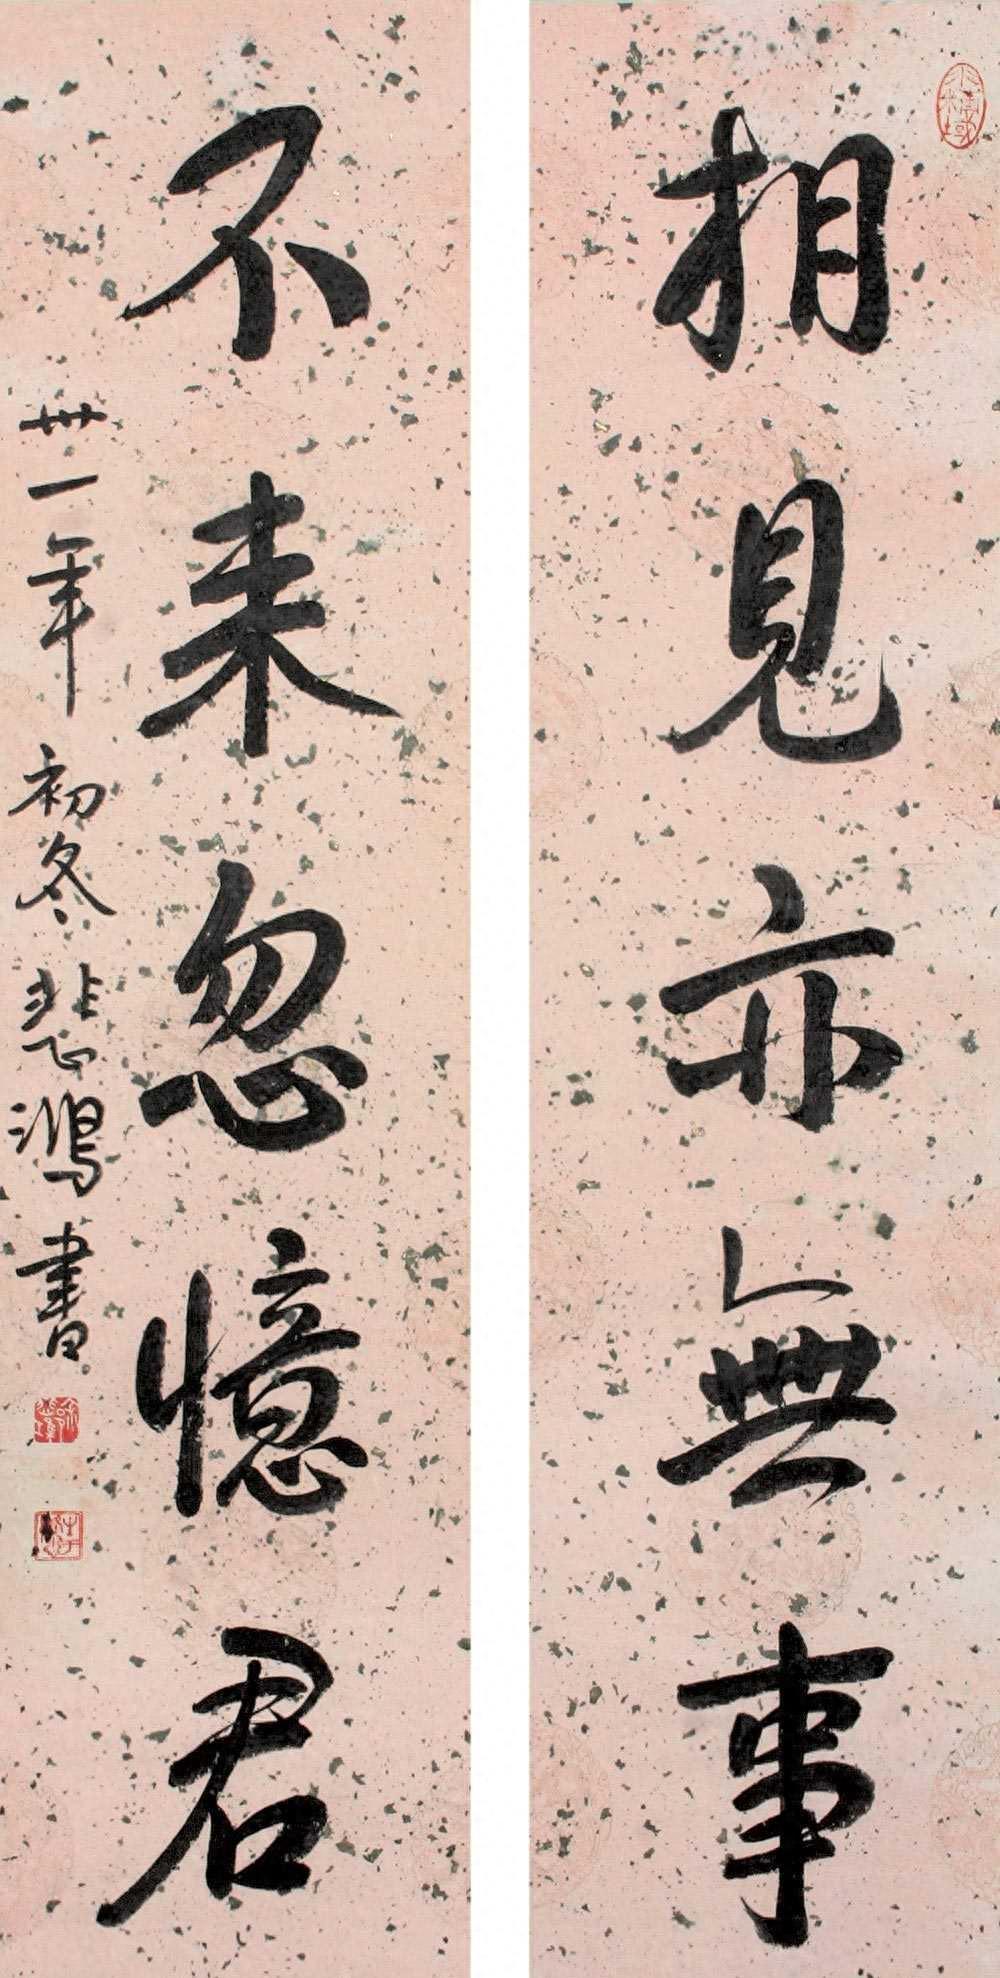 相見亦無事
不来忽憶君
卅一年初冬悲鴻書